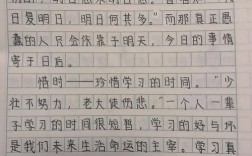 日复明日，明日何其多。”而那真正愚
蠢的人只会依靠于明天，今日的事情
寄于日后。
惜时——珍惜学习的时间。“少
壮不努力，老大徒伤悲。”一个人一辈
子学习的时间很短暂，学习的好与坏
是我们未来生活命运的主宰。学习真